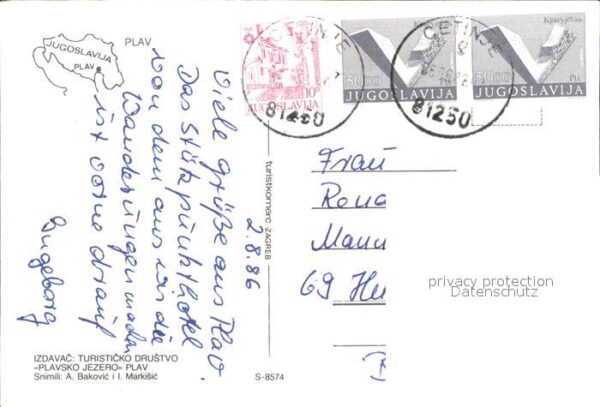 JUGOSLAVIJA
PLAV
PLAV
Viele Grüße aus Plav.
Das Stützpunkthotel
von dem aus wir die
Wanderungen machen
ist vorne drauf
Ingeborg
2.8.86
turistkomerc ZAGREB
10
JUGOSLAVIJA
CETINJE
81250
50.00
JUGOSLAVIJA
CETINJE
81250
50.00
JUGOSLAVIJA
Frau
Rena
Mann
69 He
privacy protection
Datenschutz
IZDAVAČ: TURISTIČKO DRUŠTVO
»PLAVSKO JEZERO« PLAV
Snimili: A. Baković i I. Markišić
S-8574